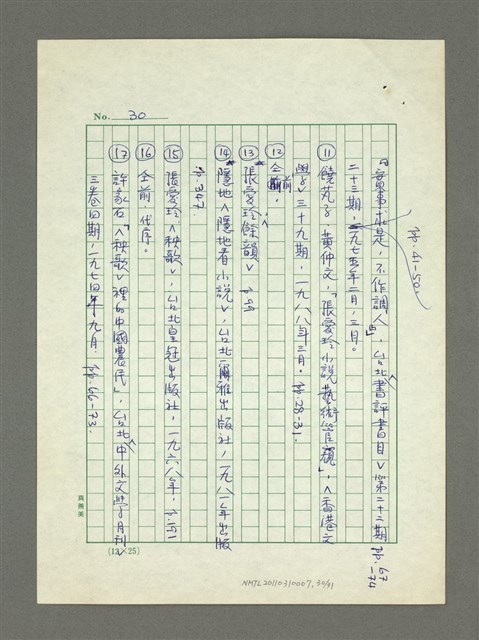 No. 30
「實事求是，不作調人」，台北<書評書目>第二十二期 pp. 67-74
二十三期，一九七五年二月，三月。 pp. 41-50。
⑪ 饒芃子、黃仲文，「張愛玲小說藝術管窺」，<香港文
學>，三十九期，一九八八年三月。pp. 28-31.
⑫ 仝前，
⑬ 張愛玲<餘韻>
⑭ 隱地<隱地看小說>，台北爾雅出版社，一九八一年出版
p. 347.
⑮ 張愛玲<秧歌>，台北皇冠出版社，一九六八年，
⑯ 仝前，代序。
⑰ 許家石「<秧歌>裡的中國農民」，台北<中外文學月刊>
三卷四期，一九七四年九月．pp. 66-73.
真善美
(12×25)
NMTL20110310007, 30/31